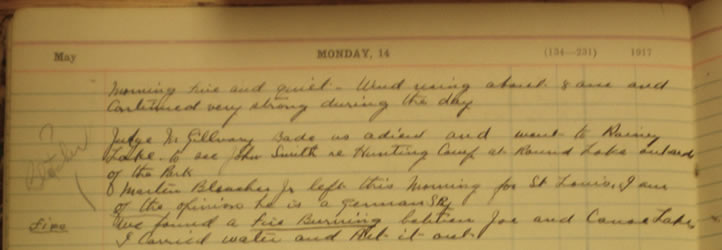 May MONDAY, 14 (134—231) 1917
Morning fine and quiet - Wind rising about 8 am and
Continued very strong during the day
Judge McGillvary Bade us adieu and went to Rainy
Lake to see John Smith re Hunting Camp at Round Lake outside
of the Park
? Bleacher
Martin Bleacher Jr left this Morning for St Louis. I am
of the opinion he is a german Spy
Fire We found a Fire Burning between Joe and Canoe Lake
I Carried water and Put it out